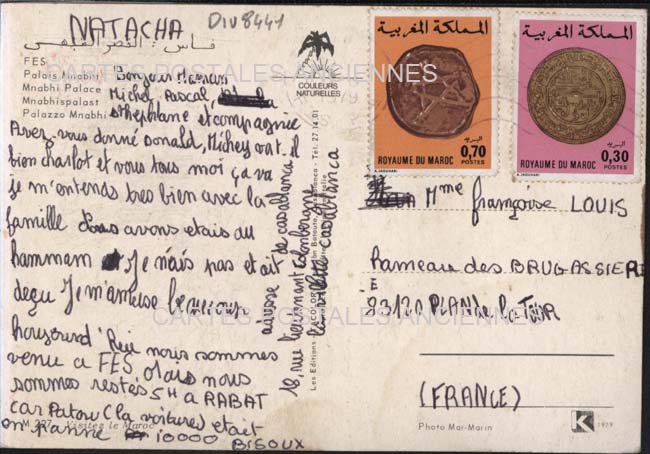 NATACHA
DIV8441
فاس : القصر المنبهي
FES
Palais Mnabhi
Mnabhi Palace
Mnabhispalast
Palazzo Mnabhi
COULEURS
NATURELLES
Bonjour Maman
Michel Pascal,
Stephane et compagnie
Avez-vous donné Donald, Mickey ont-il
bien charlot et vous tous moi ça va
je m'entends tres bien avec la
famille avons etais au
hammam Je n'ais pas etait
deçu Je m'amuse beaucoup
nous sommes
venu a FES Mais nous
sommes restés 5H a RABAT
car Patou (la voiture) etait
en panne 10000 BISOUX
M 227 Visitez le Maroc
adresse de casablanca
18, rue lieutenant
casablanca
Les Editions
Tél.: 27.14.01
المملكة المغربية
0,70
البريد
POSTES
ROYAUME DU MAROC
المملكة المغربية
0,30
البريد
POSTES
ROYAUME DU MAROC
Mme françoise LOUIS
Rameau des BRUGASSIERE
E
83120 PLAN de la TOUR
(FRANCE)
Photo Mar-Marin
K
1979
CARTES POSTALES ANCIENNES
CARTES POSTALES ANCIENNES